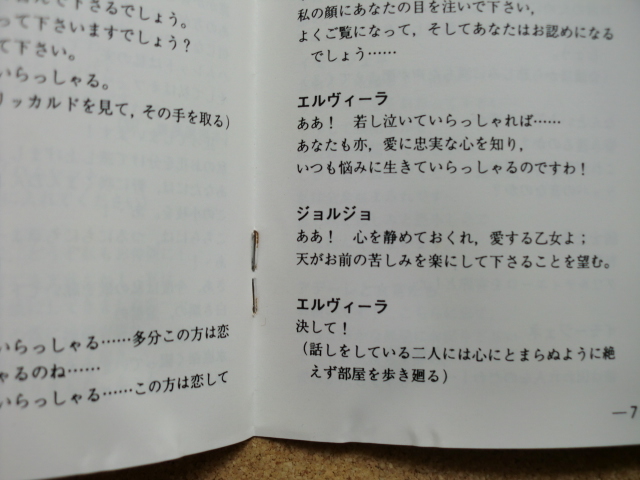 んで下さるでしょう。
って下さいますでしょう？
て下さい。
いらっしゃる。
リッカルドを見て，その手を取る）
いらっしゃる……多分この方は恋
ゃるのね……
いらっしゃる……この方は恋して
私の顔にあなたの目を注いで下さい，
よくご覧になって，そしてあなたはお認めになる
でしょう……
エルヴィーラ
ああ！　若し泣いていらっしゃれば……
あなたも亦，愛に忠実な心を知り，
いつも悩みに生きていらっしゃるのですわ！
ジョルジョ
ああ！　心を静めておくれ，愛する乙女よ；
天がお前の苦しみを楽にして下さることを望む。
エルヴィーラ
決して！
（話しをしている二人には心にとまらぬように絶
えず部屋を歩き廻る）
—7